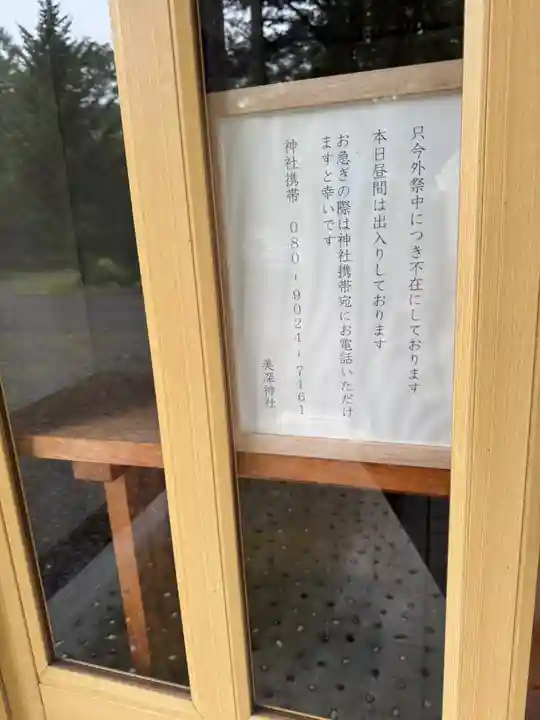 只今外祭中につき不在にしております
本日昼間は出入りしております
お急ぎの際は神社携帯宛にお電話いただけ
ますと幸いです
神社携帯　080-9024-7461
美深神社